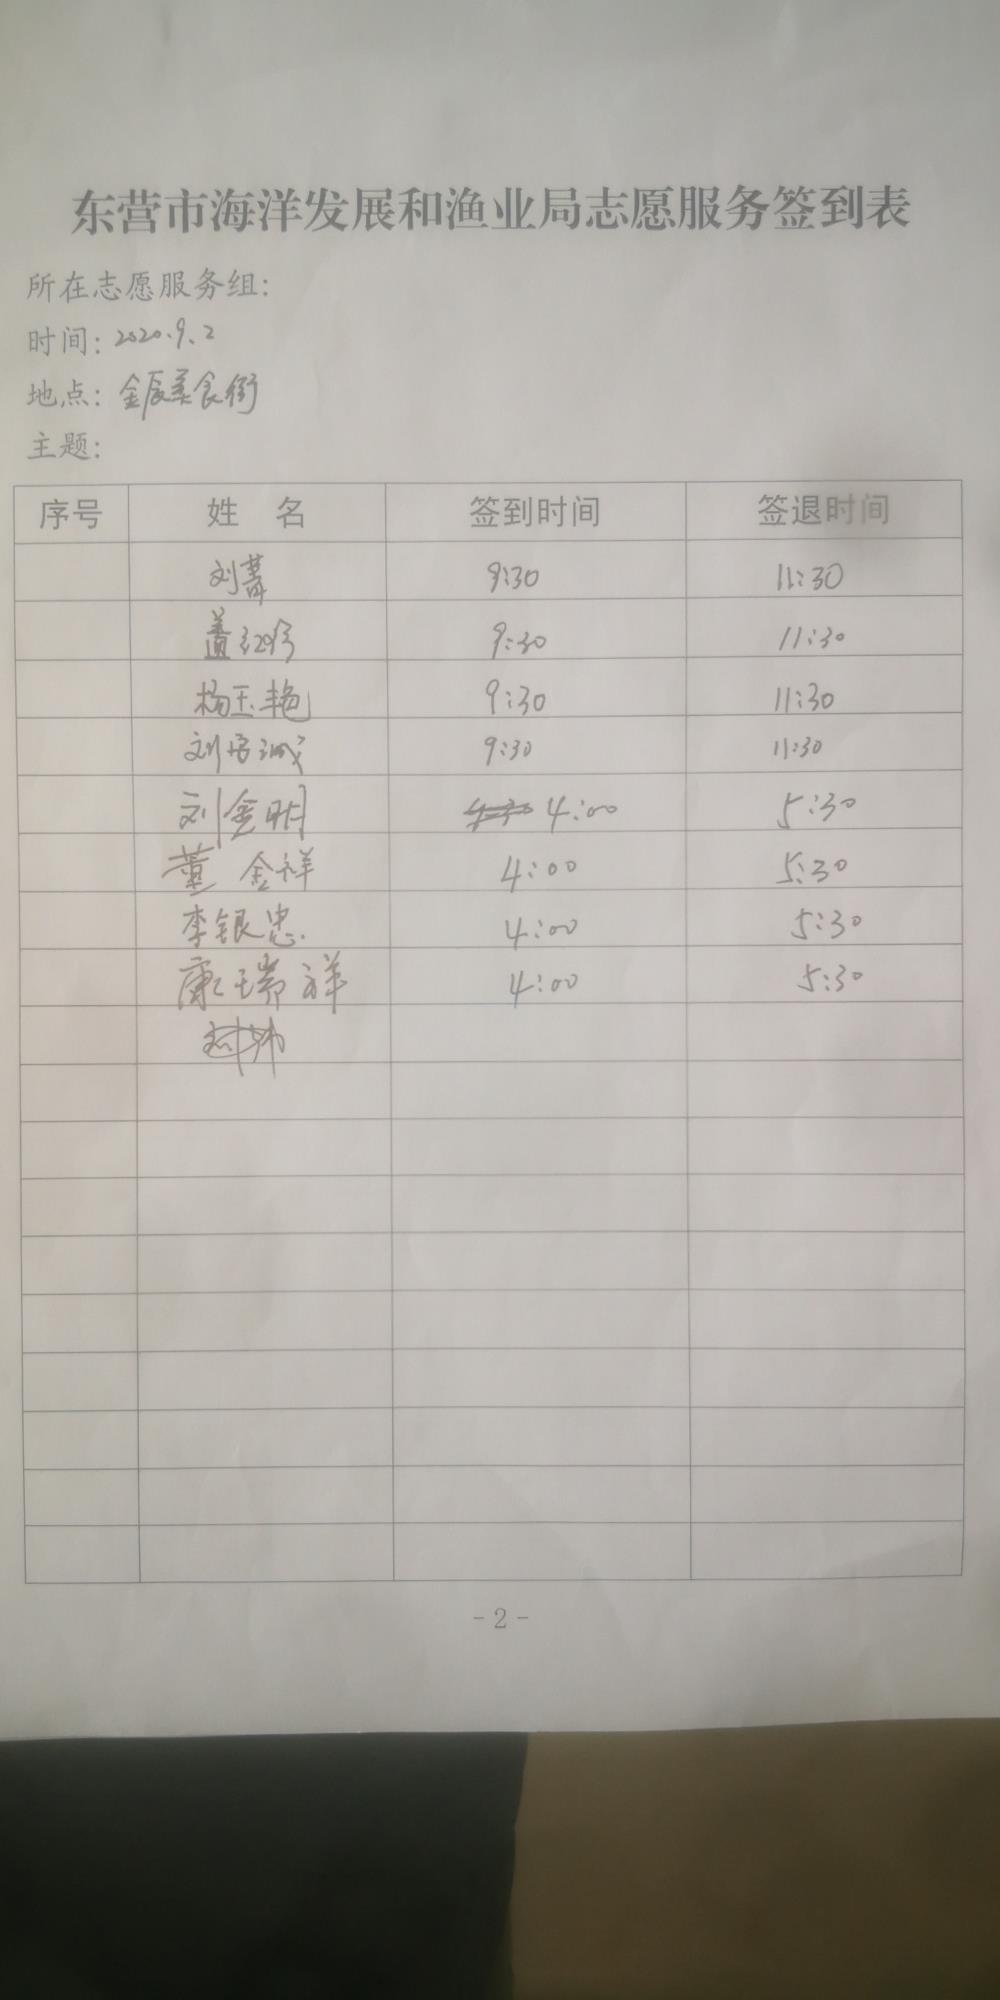 东营市海洋发展和渔业局志愿服务签到表
所在志愿服务组:
时间: 2020.9.2
地点: 金辰美食街
主题:
序号 姓 名 签到时间 签退时间
刘菁 9:30 11:30
9:30 11:30
杨玉艳 9:30 11:30
刘 9:30 11:30
刘金明 4:00 5:30
董金祥 4:00 5:30
李银忠 4:00 5:30
康瑞祥 4:00 5:30
- 2 -